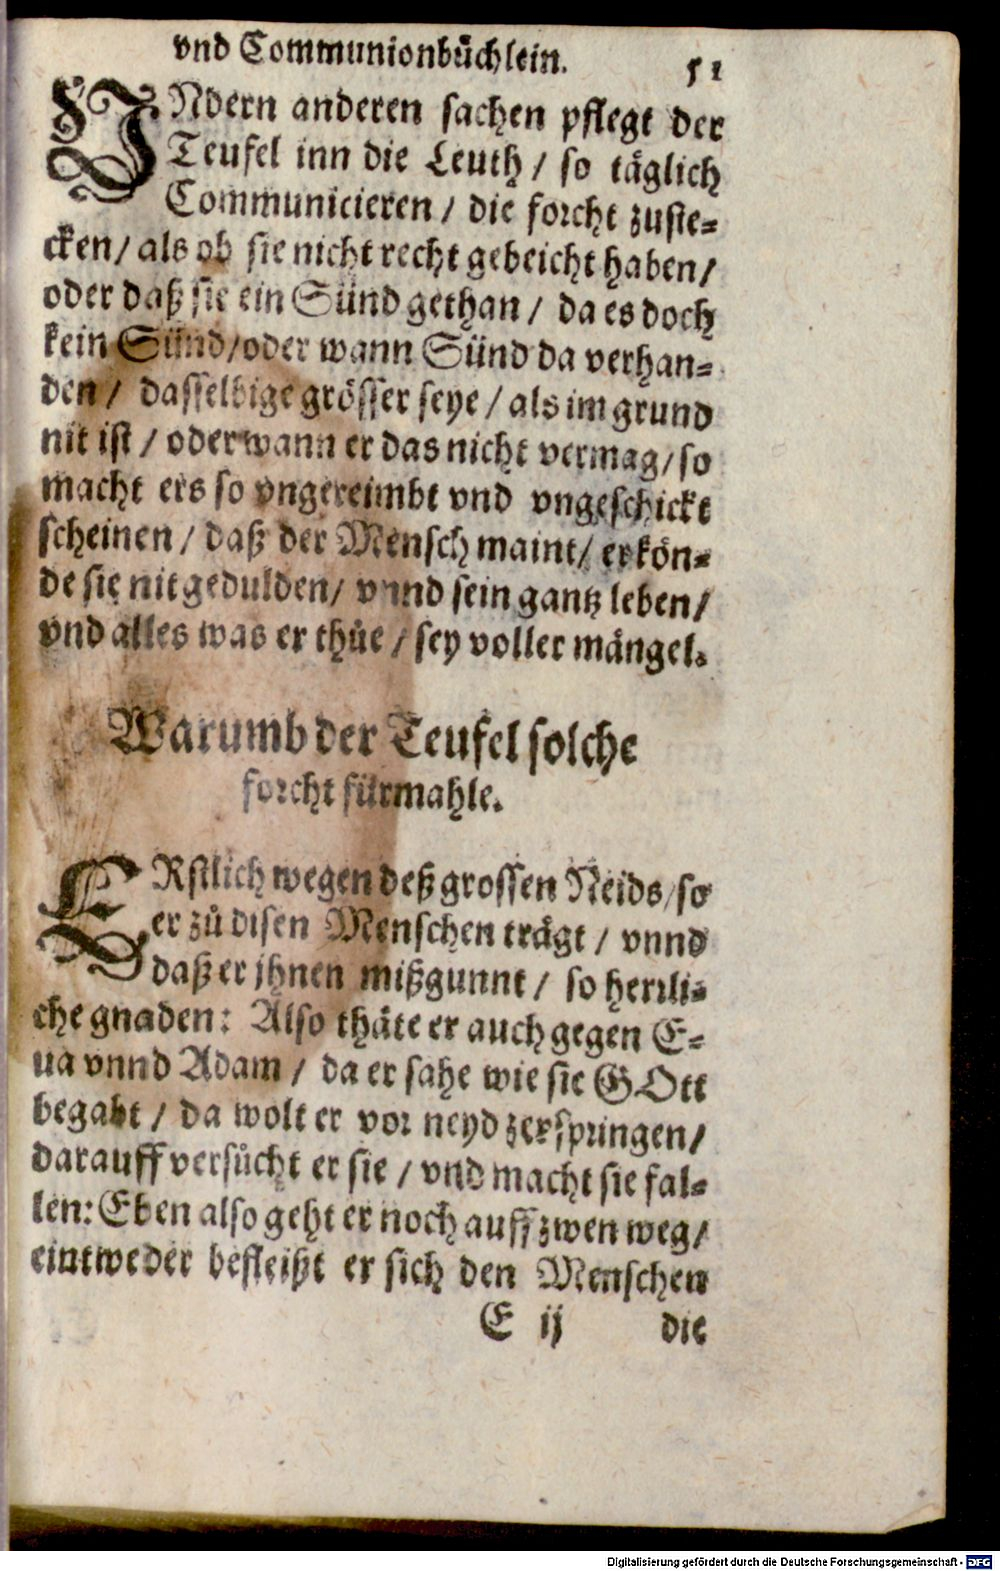 vnd Communionbüchlein. 51
INdern anderen sachen pflegt der
Teufel inn die Leuth / so täglich
Communicieren / die forcht zuste-
cken / als ob sie nicht recht gebeicht haben /
oder daß sie ein Sünd gethan / da es doch
kein Sünd / oder wann Sünd da verhan-
den / dasselbige grösser seye / als im grund
nit ist / oder wann er das nicht vermag / so
macht ers so vngereimbt vnd vngeschickt
scheinen / daß der Mensch maint / er kön-
de sie nit gedulden / vnnd sein gantz leben /
vnd alles was er thüe / sey voller mängel.
Warumb der Teufel solche
forcht fürmahle.
ERstlich wegen deß grossen Neids / so
er zů disen Menschen trägt / vnnd
daß er jhnen mißgunnt / so herrli-
che gnaden: Also thäte er auch gegen E-
ua vnnd Adam / da er sahe wie sie GOtt
begabt / da wolt er vor neyd zerspringen /
darauff versůcht er sie / vnd macht sie fal-
len: Eben also geht er noch auff zwen weg /
eintweder befleißt er sich den Menschen
E ij die
Digitalisierung gefördert durch die Deutsche Forschungsgemeinschaft - DFG